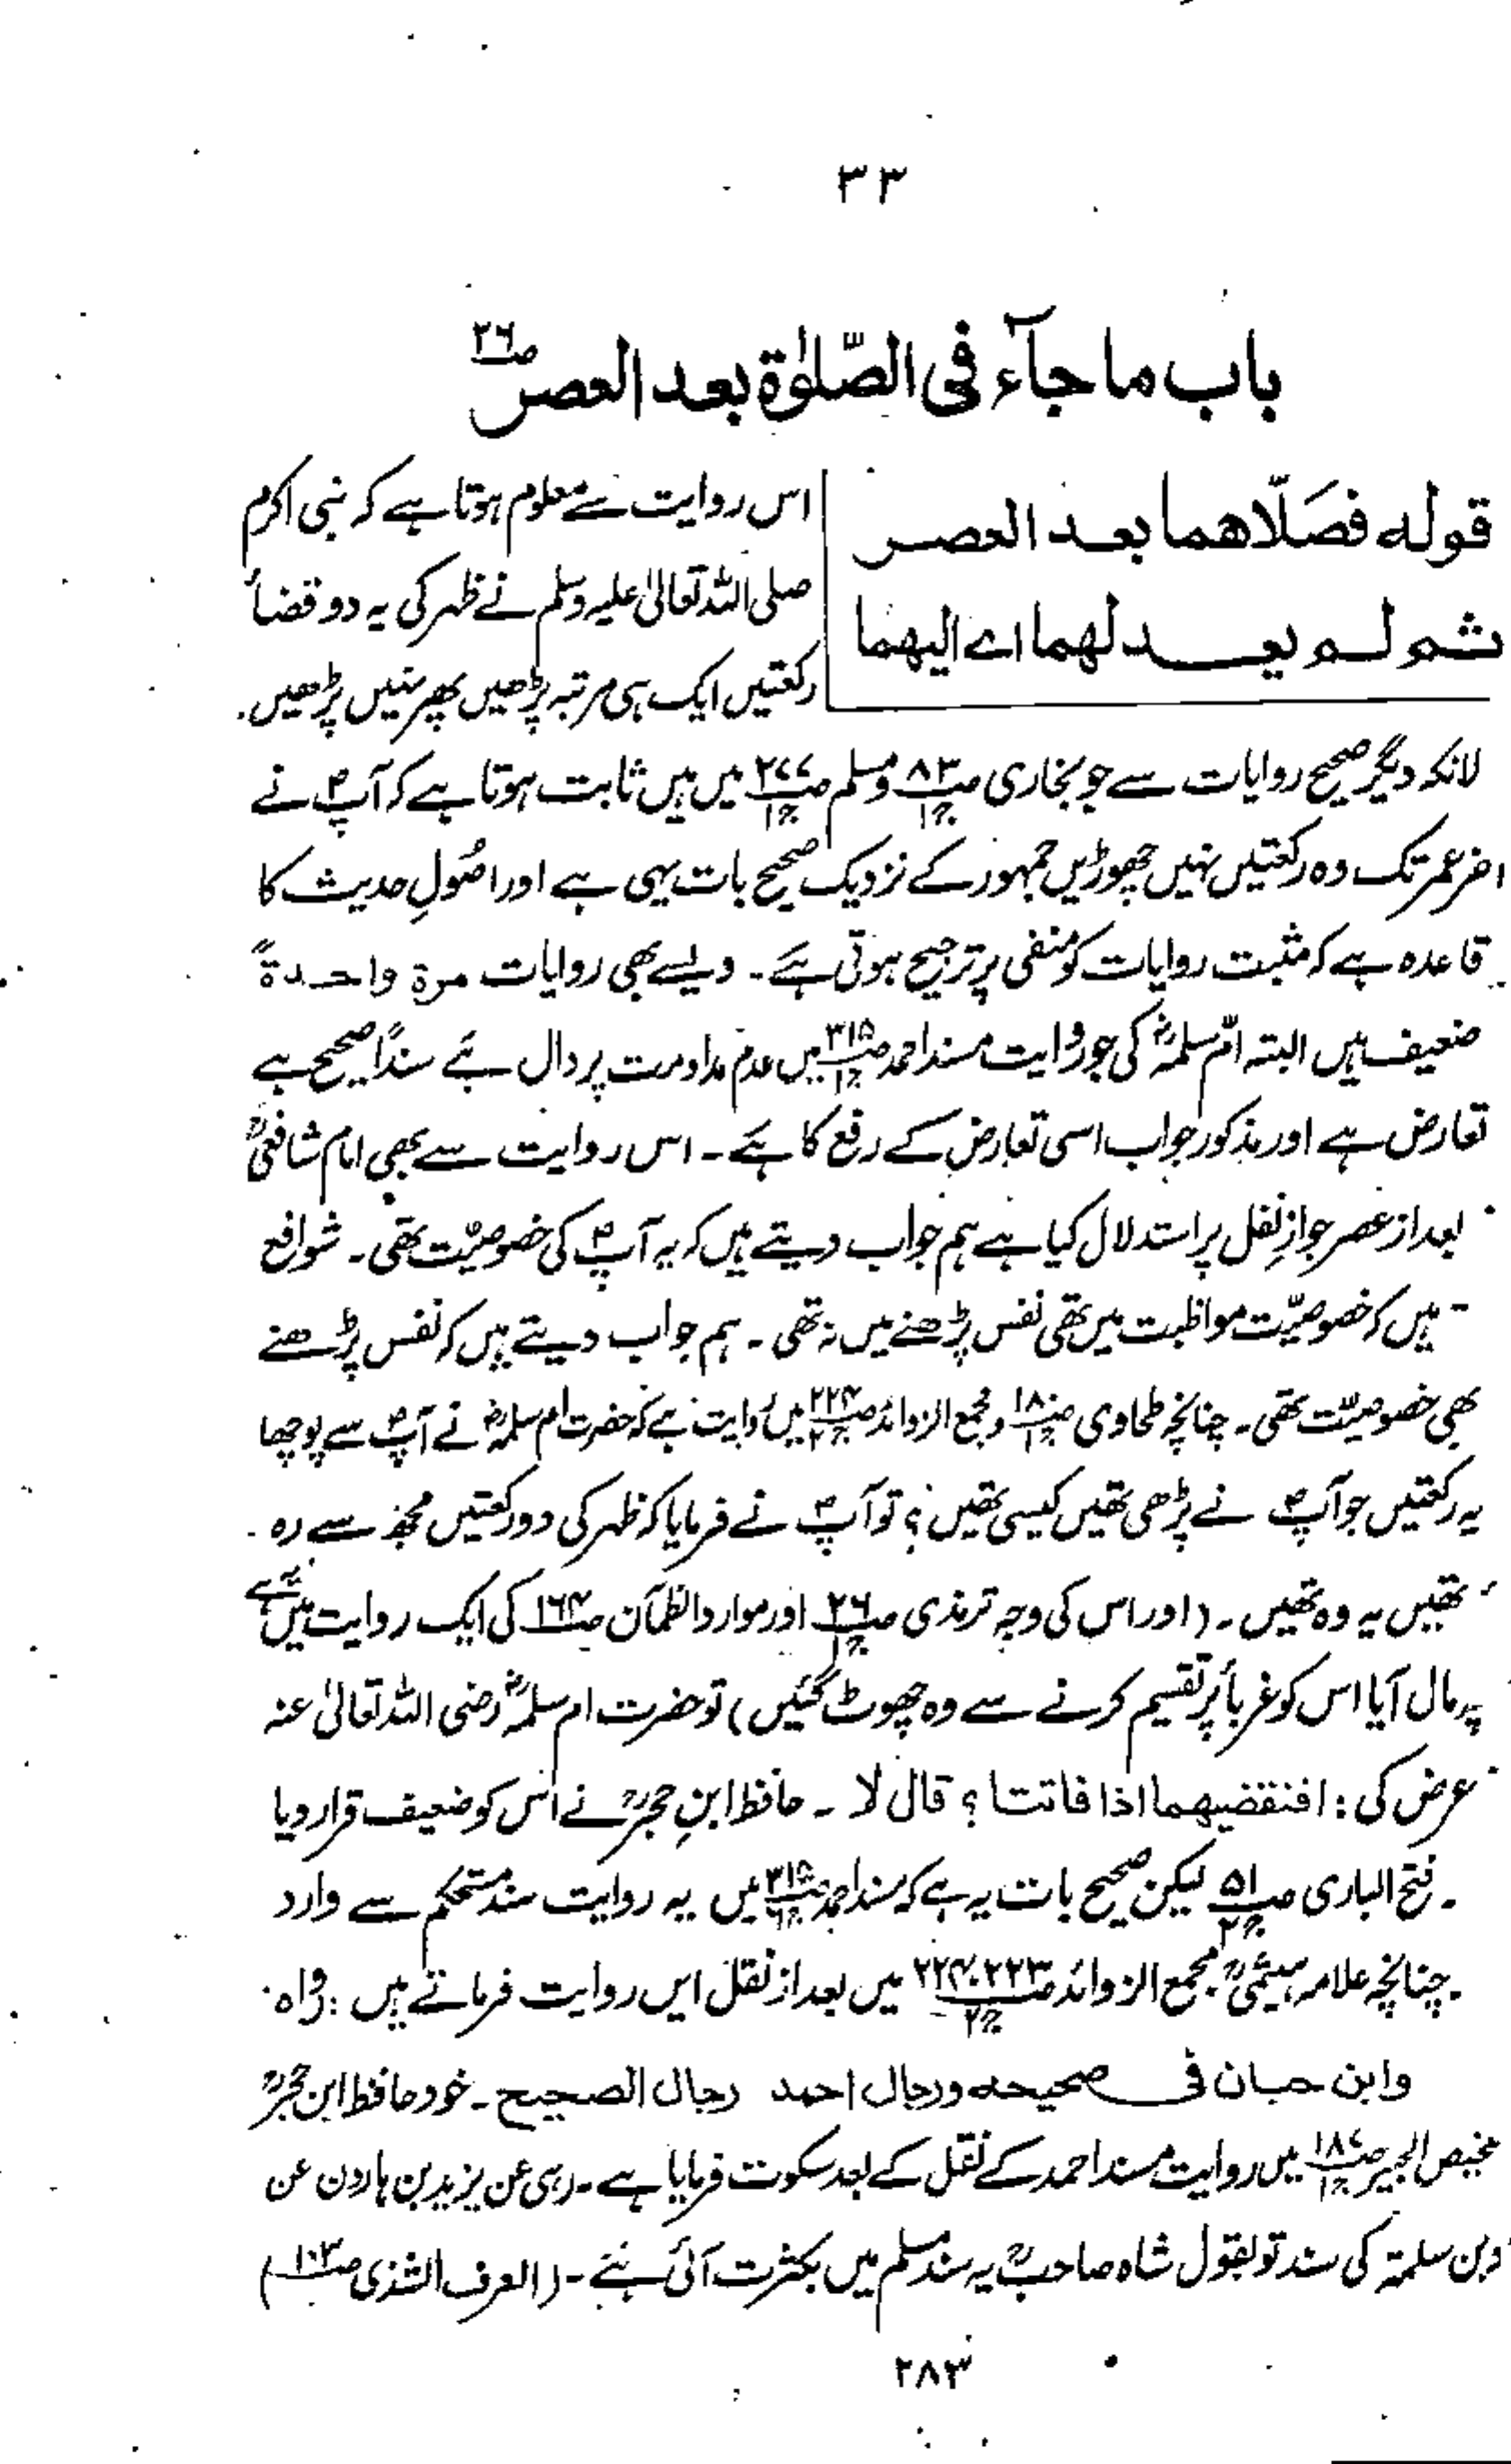 ٣٣
باب ما جآء فی الصّلوٰة بعد العصر ص٢٦
قوله فصَلّاهما بعد العصر
ثم لم يعد لهما اے اليهما
اس روایت سے معلوم ہوتا ہے کہ نبی اکرم
صلی اللہ تعالیٰ علیہ وسلم نے ظہر کی یہ دو قضأ
رکعتیں ایک ہی مرتبہ پڑھیں پھر نہیں پڑھیں۔
لانکہ دیگر صحیح روایات سے جو بخاری ص٨٣ ج١ و مسلم ص٢٧٧ ج١ میں ہیں ثابت ہوتا ہے کہ آپؐ نے
اخر عمر تک وہ رکعتیں نہیں چھوڑیں جمہور کے نزدیک صحیح بات یہی ہے اور اصُولِ حدیث کا
قاعدہ ہے کہ مثبت روایات کو منفی پر ترجیح ہوتی ہے۔ ویسے بھی روایات مرة واحدةً
ضعیف ہیں البتہ امّ سلمہؓ کی جو روایت مسند احمد ص٣١٥ میں عدم مداومت پر دال ہے سنداً صحیح ہے
تعارض ہے اور مذکور جواب اسی تعارض کے رفع کا ہے۔ اس روایت سے بھی امام شافعیؒ
بعد از عصر جوازِ نفل پر استدلال کیا ہے ہم جواب دیتے ہیں کہ یہ آپؐ کی خصوصیّت تھی۔ شوافع
ہیں کہ خصوصیّت مواظبت میں تھی نفس پڑھنے میں نہ تھی۔ ہم جواب دیتے ہیں کہ نفس پڑھنے
بھی خصوصیّت تھی۔ چنانچہ طحاوی ص١٨٠ ج١ و مجمع الزوائد ص٢٢٤ ج٢ میں روایت ہے کہ حضرت ام سلمہؓ نے آپؐ سے پوچھا
یہ رکعتیں جو آپؐ نے پڑھی تھیں کیسی تھیں؟ تو آپؐ نے فرمایا کہ ظہر کی دو رکعتیں مجھ سے رہ
تھیں یہ وہ تھیں۔ (اور اس کی وجہ ترمذی ص٢٦ ج١ اور موارد الظمآن ص١٦٤ کی ایک روایت میں ہے
پر مال آیا اس کو غربأ پر تقسیم کرنے سے وہ چھوٹ گئیں) تو حضرت ام سلمہؓ رضی اللہ تعالیٰ عنہ
عرض کی: افنقضيهما اذا فاتتا؟ قال لا ۔ حافظ ابنِ حجرؒ نے اس کو ضعیف قرار دیا
۔ فتح الباری ص٥١ ج٢ لیکن صحیح بات یہ ہے کہ مسند احمد ص٣١٥ ج٦ میں یہ روایت سند مستحکم سے وارد
۔ چنانچہ علامہ ہیثمیؒ مجمع الزوائد ص٢٢٣، ٢٢٤ ج٢ میں بعد از نقل ایں روایت فرماتے ہیں: رواہ
وابن حبان فی صحيحه ورجال احمد رجال الصحيح۔ خود حافظ ابن حجرؒ
لخیص الحبیر ص١٨٧ ج١ میں روایت مسند احمد کے نقل کے بعد سکوت فرمایا ہے۔ رہی عن یزید بن ہارون عن
د بن سلمة کی سند تو بقول شاہ صاحبؒ یہ سند مسلم میں بکثرت آئی ہے۔ (العرف الشذی ص١٠٣)
٢٨٣